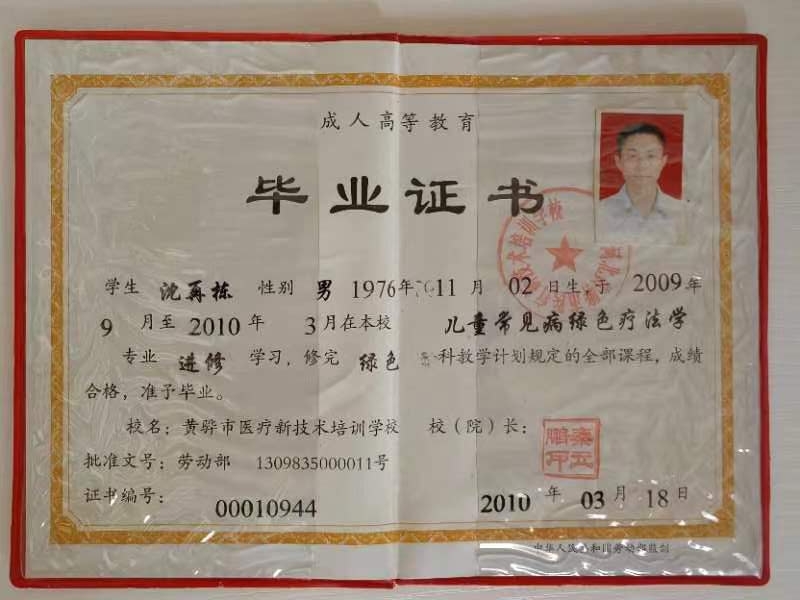 成人高等教育
毕业证书
学生 沈再栋 性别 男 1976年 11月 02日生,于 2009年
9月至 2010年 3月在本校 儿童常见病绿色疗法学
专业 进修 学习,修完 绿色 科教学计划规定的全部课程,成绩
合格,准予毕业。
校名:黄骅市医疗新技术培训学校 校(院)长:
批准文号:劳动部 1309835000011号
证书编号: 00010944 2010年 03月 18日
中华人民共和国劳动部监制